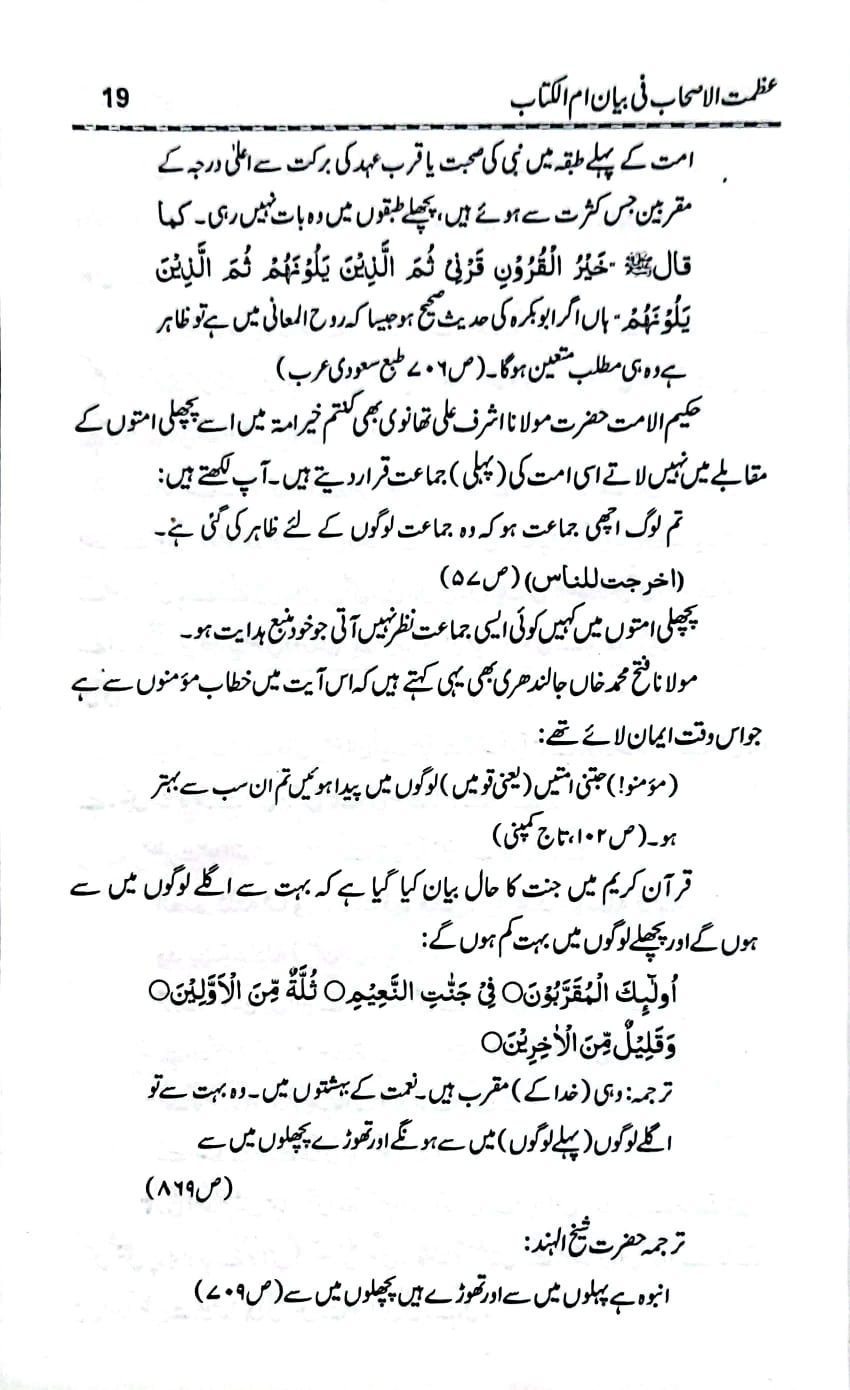 عظمت الاصحاب فی بیان ام الکتاب 19
امت کے پہلے طبقہ میں نبی کی صحبت یا قرب عہد کی برکت سے اعلیٰ درجہ کے
مقربین جس کثرت سے ہوئے ہیں، پچھلے طبقوں میں وہ بات نہیں رہی۔ کما
قال ﷺ "خَیْرُ الْقُرُوْنِ قَرْنِیْ ثُمَّ الَّذِیْنَ یَلُوْنَهُمْ ثُمَّ الَّذِیْنَ
یَلُوْنَهُمْ" ہاں اگر ابو بکرہ کی حدیث صحیح ہو جیسا کہ روح المعانی میں ہے تو ظاہر
ہے وہ ہی مطلب متعین ہوگا۔ (ص۷۰۶ طبع سعودی عرب)
حکیم الامت حضرت مولانا اشرف علی تھانوی بھی کنتم خیر امۃ میں اسے پچھلی امتوں کے
مقابلے میں نہیں لاتے اسی امت کی (پہلی) جماعت قرار دیتے ہیں۔ آپ لکھتے ہیں:
تم لوگ اچھی جماعت ہو کہ وہ جماعت لوگوں کے لئے ظاہر کی گئی ہے۔
(اخرجت للناس) (ص۵۷)
پچھلی امتوں میں کہیں کوئی ایسی جماعت نظر نہیں آتی جو خود منبع ہدایت ہو۔
مولانا فتح محمد خاں جالندھری بھی یہی کہتے ہیں کہ اس آیت میں خطاب مؤمنوں سے ہے
جو اس وقت ایمان لائے تھے:
(مؤمنو!) جتنی امتیں (یعنی قومیں) لوگوں میں پیدا ہوئیں تم ان سب سے بہتر
ہو۔ (ص۱۰۲، تاج کمپنی)
قرآن کریم میں جنت کا حال بیان کیا گیا ہے کہ بہت سے اگلے لوگوں میں سے
ہوں گے اور پچھلے لوگوں میں بہت کم ہوں گے:
اُولٰٓئِكَ الْمُقَرَّبُوْنَ○ فِیْ جَنّٰتِ النَّعِیْمِ○ ثُلَّةٌ مِّنَ الْاَوَّلِیْنَ○
وَقَلِیْلٌ مِّنَ الْاٰخِرِیْنَ○
ترجمہ: وہی (خدا کے) مقرب ہیں۔ نعمت کے بہشتوں میں۔ وہ بہت سے تو
اگلے لوگوں (پہلے لوگوں) میں سے ہونگے اور تھوڑے پچھلوں میں سے
(ص۸۶۹)
ترجمہ حضرت شیخ الہند:
انبوہ ہے پہلوں میں سے اور تھوڑے ہیں پچھلوں میں سے (ص۷۰۹)